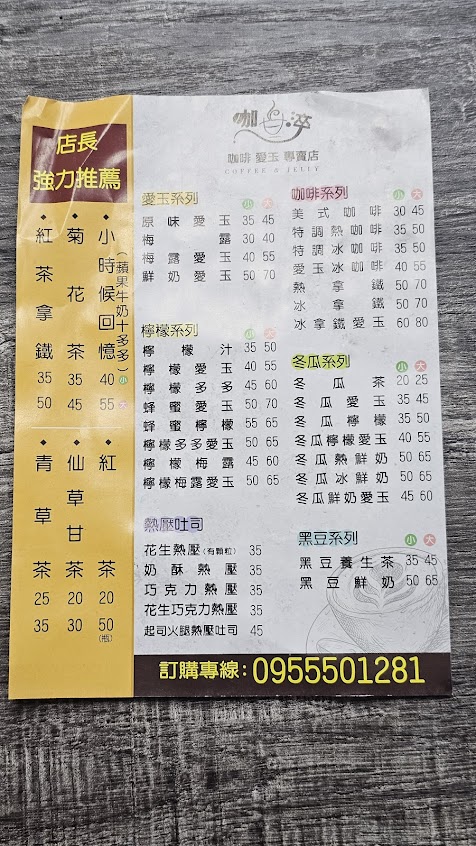 店長
強力推薦
小時候回憶(蘋果牛奶十多多) 40 小 55 大
菊花茶 35 45
紅茶拿鐵 35 50
紅茶 20 50(瓶)
仙草甘茶 20 30
青草茶 25 35
咖 淬
咖啡 愛玉 專賣店
COFFEE & JELLY
愛玉系列 小 大
原味愛玉 35 45
梅露 30 40
梅露愛玉 40 55
鮮奶愛玉 50 70
檸檬系列 小 大
檸檬汁 35 50
檸檬愛玉 40 55
檸檬多多 45 60
蜂蜜愛玉 50 70
蜂蜜檸檬 55 65
檸檬多多愛玉 50 65
檸檬梅露 45 60
檸檬梅露愛玉 50 65
熱壓吐司
花生熱壓(有顆粒) 35
奶酥熱壓 35
巧克力熱壓 35
花生巧克力熱壓 35
起司火腿熱壓吐司 45
咖啡系列 小 大
美式咖啡 30 45
特調熱咖啡 35 50
特調冰咖啡 35 50
愛玉冰咖啡 40 55
熱拿鐵 50 70
冰拿鐵 50 70
冰拿鐵愛玉 60 80
冬瓜系列 小 大
冬瓜茶 20 25
冬瓜愛玉 35 45
冬瓜檸檬 35 50
冬瓜檸檬愛玉 40 55
冬瓜熱鮮奶 50 65
冬瓜冰鮮奶 50 65
冬瓜鮮奶愛玉 45 60
黑豆系列 小 大
黑豆養生茶 35 45
黑豆鮮奶 50 65
訂購專線：0955501281